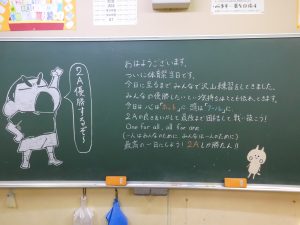 2A優勝するぞ〜
おはようございます。
ついに体育祭当日です。
今日に至るまでみんなで沢山練習をしてきました。
みんなの優勝したいという気持ちはとても伝わってきます。
今日は心は「ホット」に 頭は「クール」に、
2Aの良さをいかして最後まで団結して戦い抜こう！
One for all, all for one.
(一人はみんなのために みんなは一人のために)
最高の一日にしよう！2Aしか勝たん!!